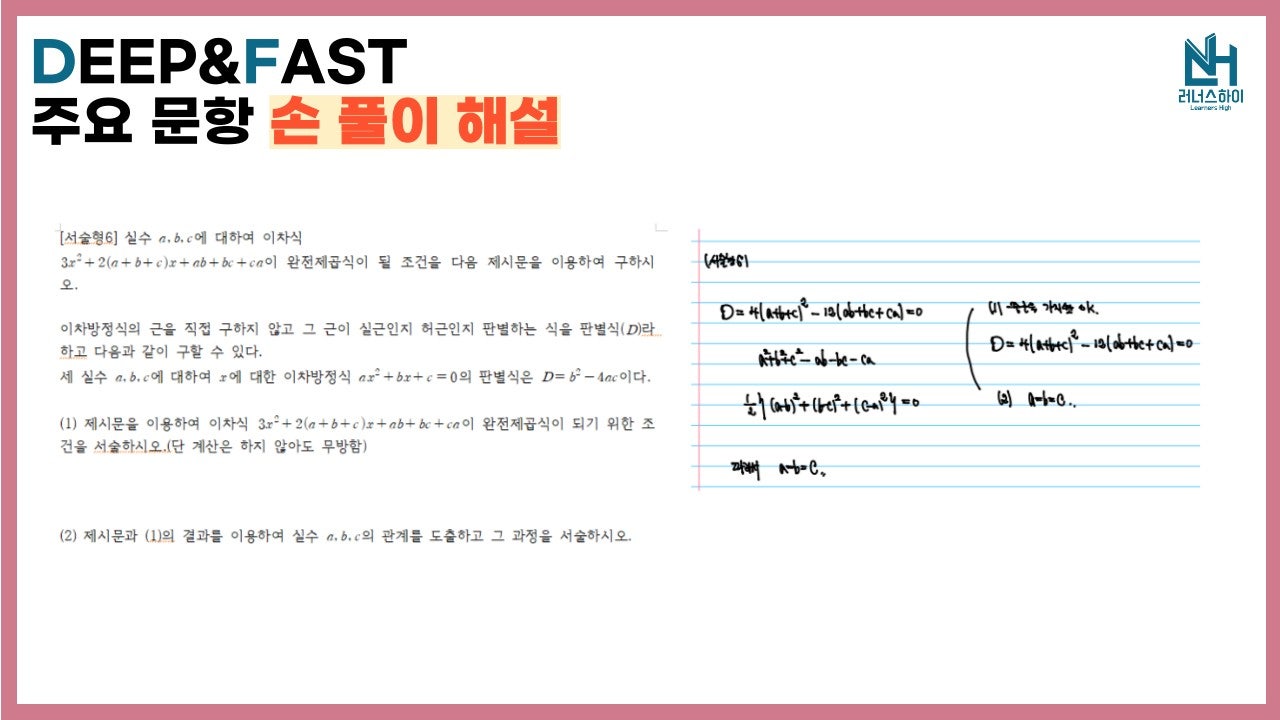 DEEP&FAST
주요 문항 손 풀이 해설
러너스하이
Learners High
[서술형6] 실수 a, b, c에 대하여 이차식
3x²+2(a+b+c)x+ab+bc+ca이 완전제곱식이 될 조건을 다음 제시문을 이용하여 구하시
오.
이차방정식의 근을 직접 구하지 않고 그 근이 실근인지 허근인지 판별하는 식을 판별식(D)라
하고 다음과 같이 구할 수 있다.
세 실수 a, b, c에 대하여 x에 대한 이차방정식 ax²+bx+c=0의 판별식은 D=b²-4ac이다.
(1) 제시문을 이용하여 이차식 3x²+2(a+b+c)x+ab+bc+ca이 완전제곱식이 되기 위한 조
건을 서술하시오.(단 계산은 하지 않아도 무방함)
(2) 제시문과 (1)의 결과를 이용하여 실수 a, b, c의 관계를 도출하고 그 과정을 서술하시오.
(서술형6)
D=4(a+b+c)²-12(ab+bc+ca)=0
a²+b²+c²-ab-bc-ca
½{(a-b)²+(b-c)²+(c-a)²}=0
따라서 a=b=c.
(1) 중근을 가지면 ok.
D=4(a+b+c)²-12(ab+bc+ca)=0
(2) a=b=c.